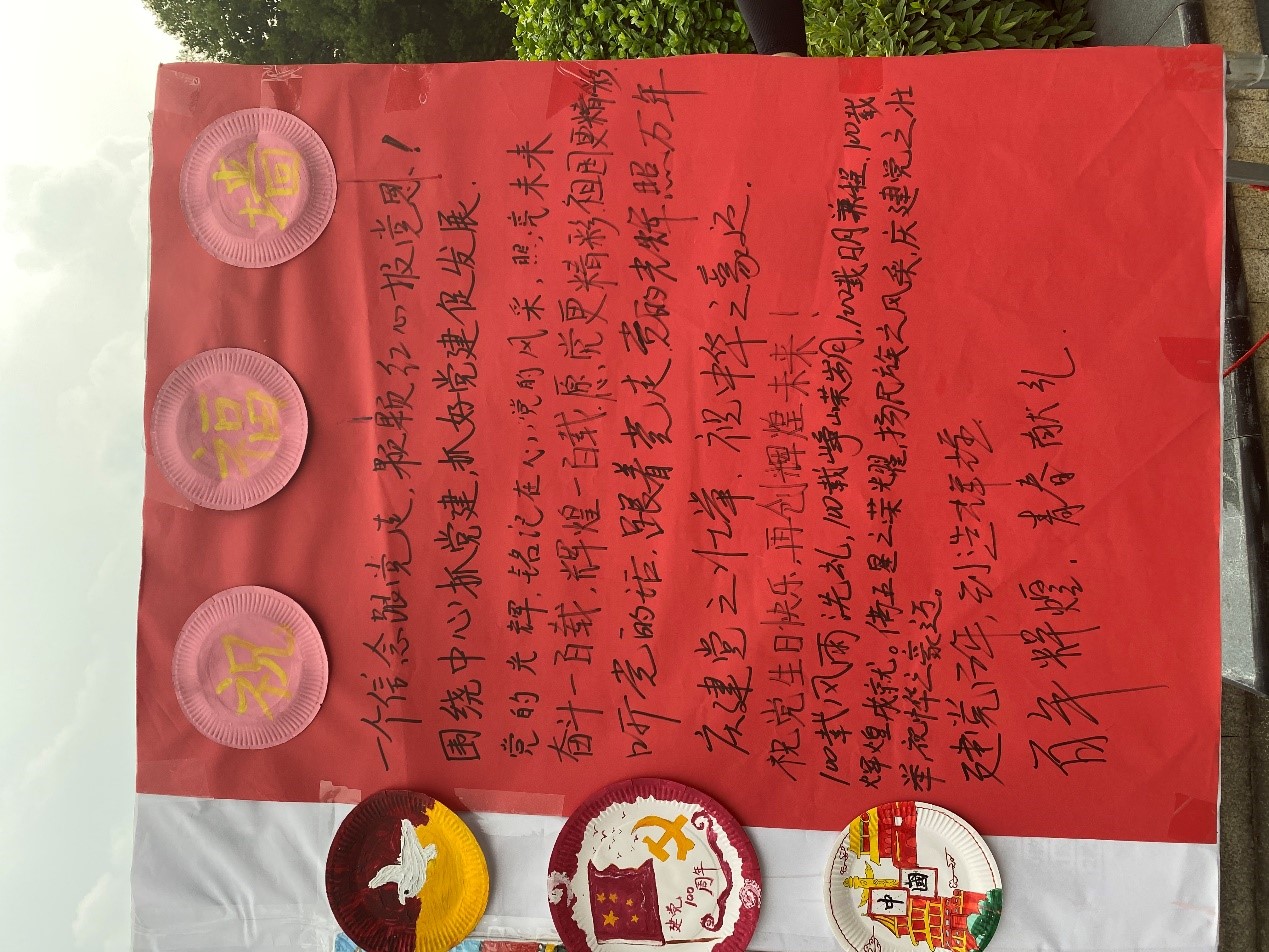 祝福墙
一个信念跟党走,颗颗红心报党恩!
围绕中心抓党建,抓好党建促发展.
党的光辉,铭记在心,党的风采,照亮未来
奋斗一百载,辉煌一百载.愿党更精彩祖国更精彩.
听党的话,跟着党走党的光辉照万年
庆建党之壮举.祝中华之豪迈.
祝党生日快乐,再创辉煌未来!
100载风雨洗礼,100载峥嵘岁月,100载日月兼程,100载
辉煌成就。傳五星之荣耀,扬民族之风采,庆建党之壮
举,祝中华之豪迈。
建党百年,创造辉煌.
百年辉煌.青春献礼.
建党
100
周年
中國